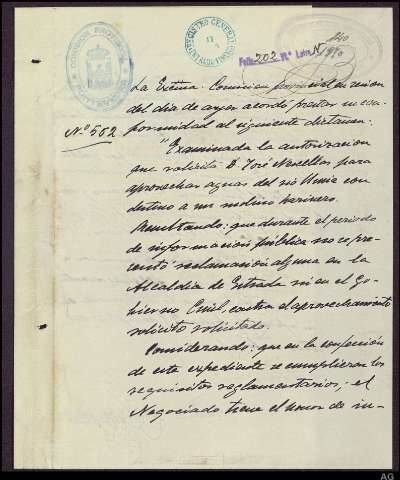 COMISION PROVINCIAL
REGISTRO GENERAL
Folio 202 Nº Letra N
La Excma. Comision provincial en sesion
del dia de ayer acordó prestar su con
Nº 562
formidad al siguiente dictamen:
"Examinada la autorizacion
que solicita D. José Novellos para
aprovechar aguas del rio Umia con
destino a un molino harinero.
Resultando: que durante el periodo
de informacion pública no se pre-
sentó reclamacion alguna en la
Alcaldia de Estrada ni en el Go-
bierno Civil, contra el aprovechamiento
solicito solicitado.
Considerando: que en la confeccion
de este expediente se cumplieron los
requisitos reglamentarios, el
Negociado tiene el honor de in-
AG